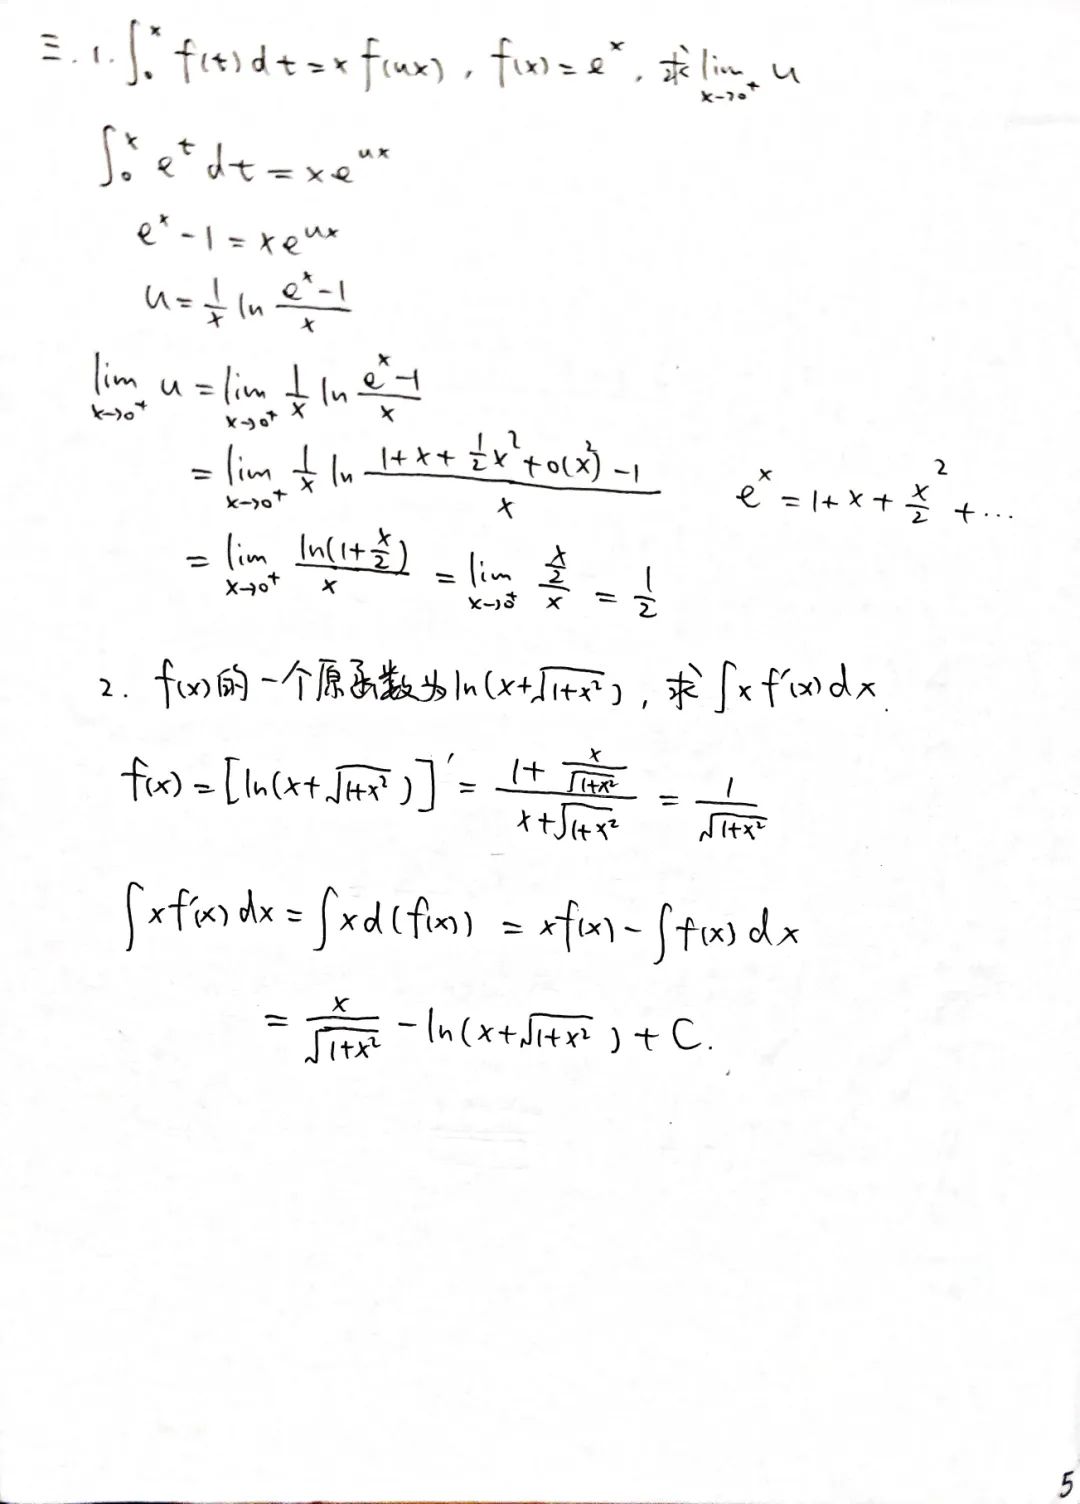 三.1. ∫₀ˣ f(t)dt=x f(ux), f(x)=eˣ, 求 lim_{x→0⁺} u
∫₀ˣ eᵗ dt = x e^{ux}
eˣ-1=xe^{ux}
u=\frac{1}{x} ln \frac{eˣ-1}{x}
lim_{x→0⁺} u = lim_{x→0⁺} \frac{1}{x} ln \frac{eˣ-1}{x}
= lim_{x→0⁺} \frac{1}{x} ln \frac{1+x+\frac{1}{2}x²+o(x²)-1}{x}   eˣ=1+x+\frac{x²}{2}+...
= lim_{x→0⁺} \frac{ln(1+\frac{x}{2})}{x} = lim_{x→0⁺} \frac{\frac{x}{2}}{x} = \frac{1}{2}
2. f(x)的一个原函数为ln(x+√(1+x²)), 求∫x f'(x)dx.
f(x)=[ln(x+√(1+x²))]' = \frac{1+\frac{x}{√(1+x²)}}{x+√(1+x²)} = \frac{1}{√(1+x²)}
∫xf'(x)dx=∫xd(f(x)) = xf(x)-∫f(x)dx
= \frac{x}{√(1+x²)} -ln(x+√(1+x²))+C.
5